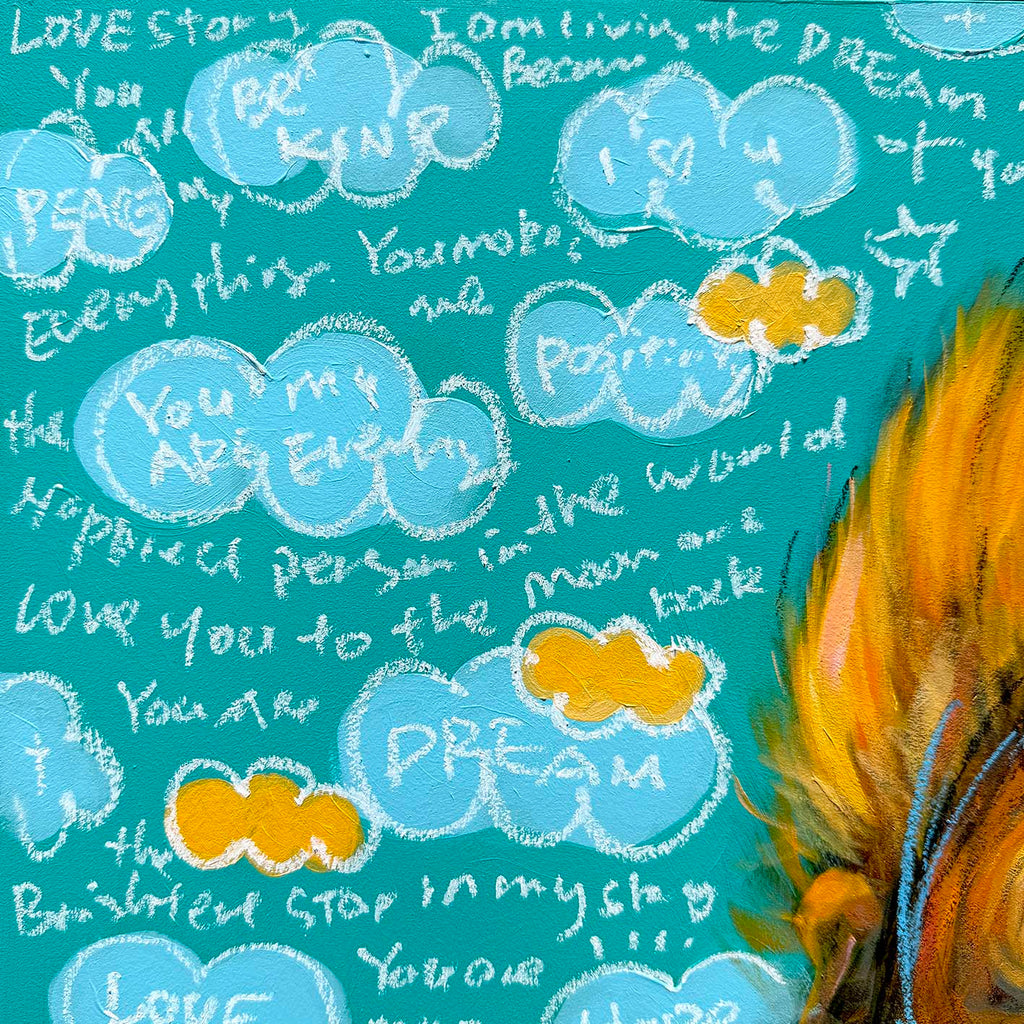 LOVE Story
I am living the DREAM
Because
You
BE
KIND
I ♡ U
PEACE
my
Everything.
You make
me
Positivity
You my
ARE Every
the
Happiest person in the world
Love you to the moon and
back
You are
DREAM
the
STAR in my sky
!!!!
You are
LOVE